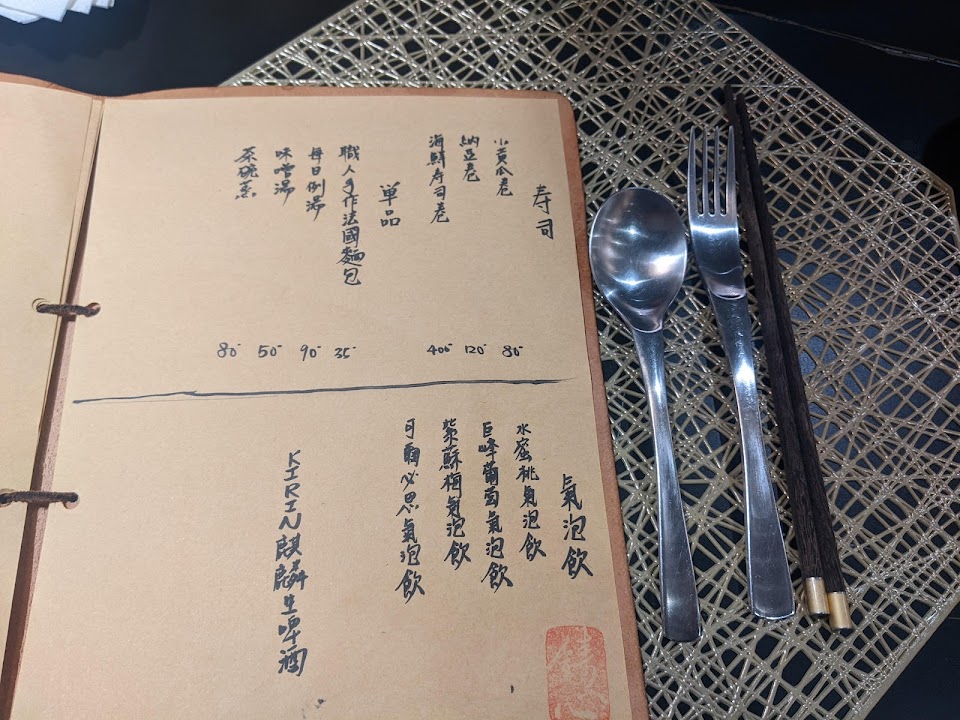 寿司
小黄瓜卷 80-
納豆卷 120-
海鮮寿司卷 400-
単品
職人手作法國麵包 35-
每日例湯 90-
味噌湯 50-
茶碗蒸 80-
氣泡飲
水蜜桃氣泡飲
巨峰葡萄氣泡飲
紫蘇梅氣泡飲
可爾必思氣泡飲
KIRIN麒麟生啤酒